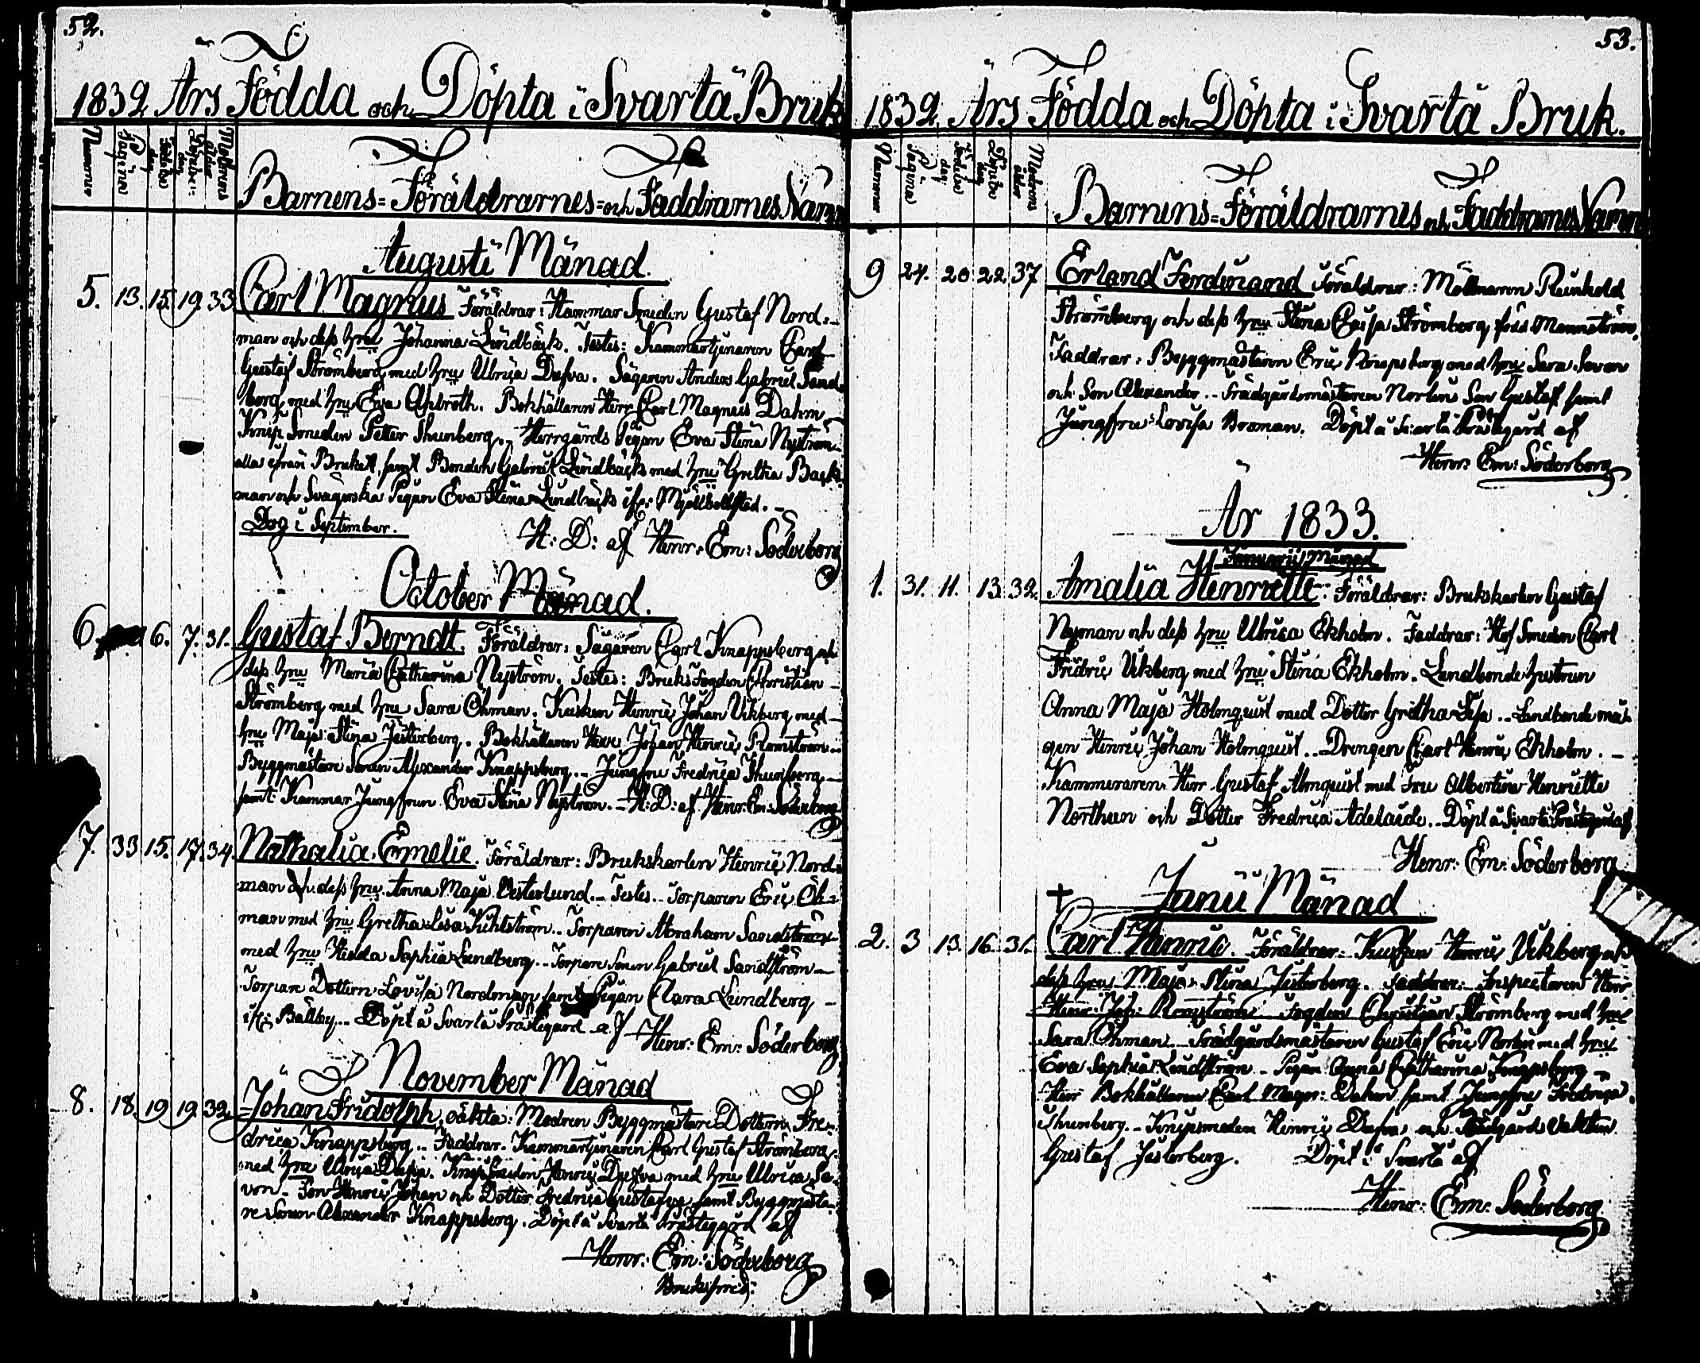 52.
1832 Års Födda och Döpta i Svartå Bruk
Nummer
Pagina
Födelse dag
Döpelse dag
Modrens ålder
Barnens= Föräldrarnes= och Faddrarnes Namn
Augusti Månad.
5. 13. 15. 19. 33. Carl Magnus Föräldrar: Hammar Smeden Gustaf Nord=
man och dess hru Johanna Lindbäck. Testes: Kammartjenaren Carl
Gustaf Strömberg med hru Ulrica Dufva. Sågaren Anders Gabriel Sand
berg med hru Eva Ahlroth. Bokhållaren Herr Carl Magnus Dahm
Knip Smeden Petter Thunberg. Herrgårds Pigan Eva Stina Nyström
alla ifrån Bruket, samt Bonden Gabriel Lindbäck med hru Gretha Back
man och Svägerska Pigan Eva Stina Lindbäck
Dog i September.
H: D: af Henr: Em: Söderborg
October Månad.
6. 6. 7. 31. Gustaf Berndt. Föräldrar: Sågaren Carl Knappsberg och
dess hru Maria Catharina Nyström. Testes: Bruks Fogden Christian
Strömberg med hru Sara Öhman. Kusken Henric Johan Vikberg med
hru Maja Stina Jesterberg. Bokhållaren Herr Johan Henric Romström
Byggmästare Sonen Alexander Knappsberg. Jungfru Fredrica Thunberg
samt Kammar Jungfrun Eva Stina Nyström. H: D: af Henr: Em: Söderborg
7. 33 15. 17. 34. Nathalia Emelie. Föräldrar: Brukskarlen Henric Nord=
man och dess hru Anna Maja Vesterlund. Testes. Torparen Eric Öh=
man med hru Gretha Lisa Kihlström. Torparen Abraham Sandström
med hru Hedda Sophia Lundberg. Torpare Sonen Gabriel Sandström
Torpare Dottern Lovisa Nordman samt Pigan Clara Lundberg
Bällby. Döpt å Svartå Prästegård af
Henr: Em: Söderborg
November Månad
8. 18. 19 19. 32. Johan Fridolph, oäkta: Modren Byggmästare Dottern Fre=
drica Knappsberg. Faddrar. Kammartjenaren Carl Gustaf Strömberg
med hru Ulrica Dufva. Knip Smeden Henric Dufva med hru Ulrica Sa=
von. Son Henric Johan och Dotter Fredrica Gustafva samt Byggmästa=
re Sonen Alexander Knappsberg. Döpt å Svartå Prästegård af
Henr: Em: Söderborg
Brukspred:
53.
1832 Års Födda och Döpta i Svartå Bruk.
Nummer
Pagina
Födelse dag
Döpelse dag
Modrens ålder
Barnens= Föräldrarnes och Faddrarnes Namn
9 24. 20 22 37 Erland Ferdinand Föräldrar: Möllnaren Reinhold
Strömberg och dess hru Stina Caisa Strömberg, född Mannström.
Faddrar: Byggmästaren Eric Knapsberg med hru Sara Savon
och Son Alexander. Trädgårdsmästaren Norlins Son Gustaf samt
Jungfru Lovisa Broman. Döpt å Svartå Prästegård af
Henr: Em: Söderborg
År 1833.
Januarii Månad
1. 31. 11. 13. 32. Amalia Henriette. Föräldrar: Brukskarlen Gustaf
Nyman och dess hru Ulrica Ekholm. Faddrar: Hof Smeden Carl
Fredric Vikberg med hru Stina Ekholm. Landbonde hustrun
Anna Maja Holmquist med Dotter Gretha Lisa. Landbonde må=
gen Henric Johan Holmquist. Drengen Carl Henric Ekholm.
Kammeraren Herr Gustaf Almquist med Fru Albertina Henriette
Northun och Dotter Fredrica Adelaide. Döpt å Svartå Prästegård af
Henr: Em: Söderborg
+
Junii Månad
2. 3 13. 16. 31. Carl Henric. Föräldrar: Kusken Henric Vikberg och
dess hru Maja Stina Jesterberg. Faddrar: Inspectoren Herr
Henr: Joh: Romström Fogden Christian Strömberg med hru
Sara Öhman. Trädgårdsmästaren Gustaf Eric Norlin med hru
Eva Sophia Lindström. Pigan Anna Catharina Knapsberg
Herr Bokhållaren Carl Magn: Dahm samt Jungfru Fredrica
Thunberg. Knipsmeden Henric Dufva och
Gustaf Jesterberg. Döpt i Svartå af
Henr: Em: Söderborg